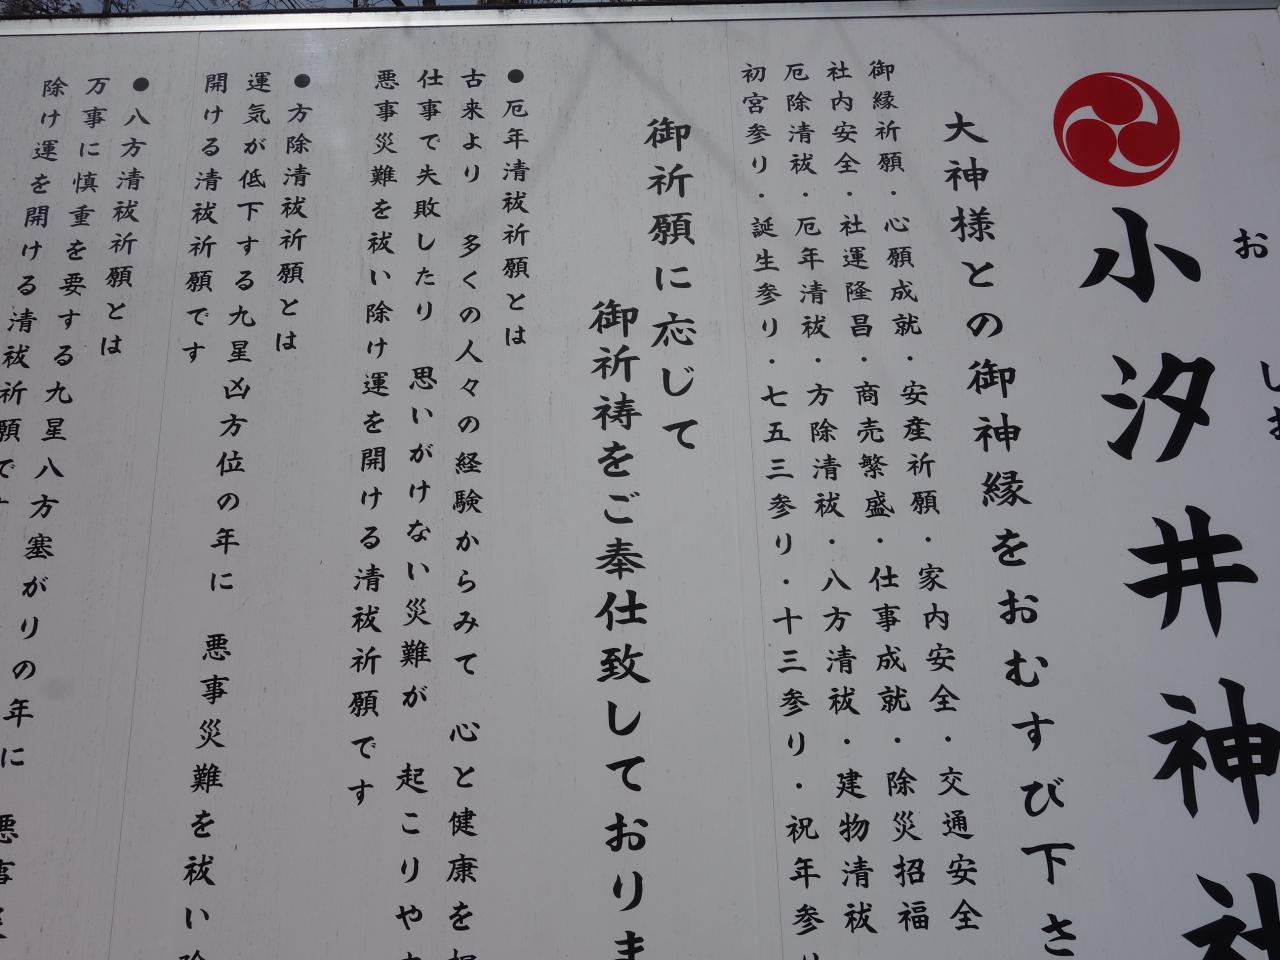 小汐井神社
お
しお
大神様との御神縁をおむすび下さ
御縁祈願・心願成就・安産祈願・家内安全・交通安全
社内安全・社運隆昌・商売繁盛・仕事成就・除災招福
厄除清祓・厄年清祓・方除清祓・八方清祓・建物清祓
初宮参り・誕生参り・七五三参り・十三参り・祝年参り
御祈願に応じて
御祈祷をご奉仕致しておりま
●厄年清祓祈願とは
古来より 多くの人々の経験からみて 心と健康を
仕事で失敗したり 思いがけない災難が 起こりや
悪事災難を祓い除け運を開ける清祓祈願です
●方除清祓祈願とは
運気が低下する九星凶方位の年に 悪事災難を祓い除
開ける清祓祈願です
●八方清祓祈願とは
万事に慎重を要する九星八方塞がりの年に 悪事
除け運を開ける清祓祈願です